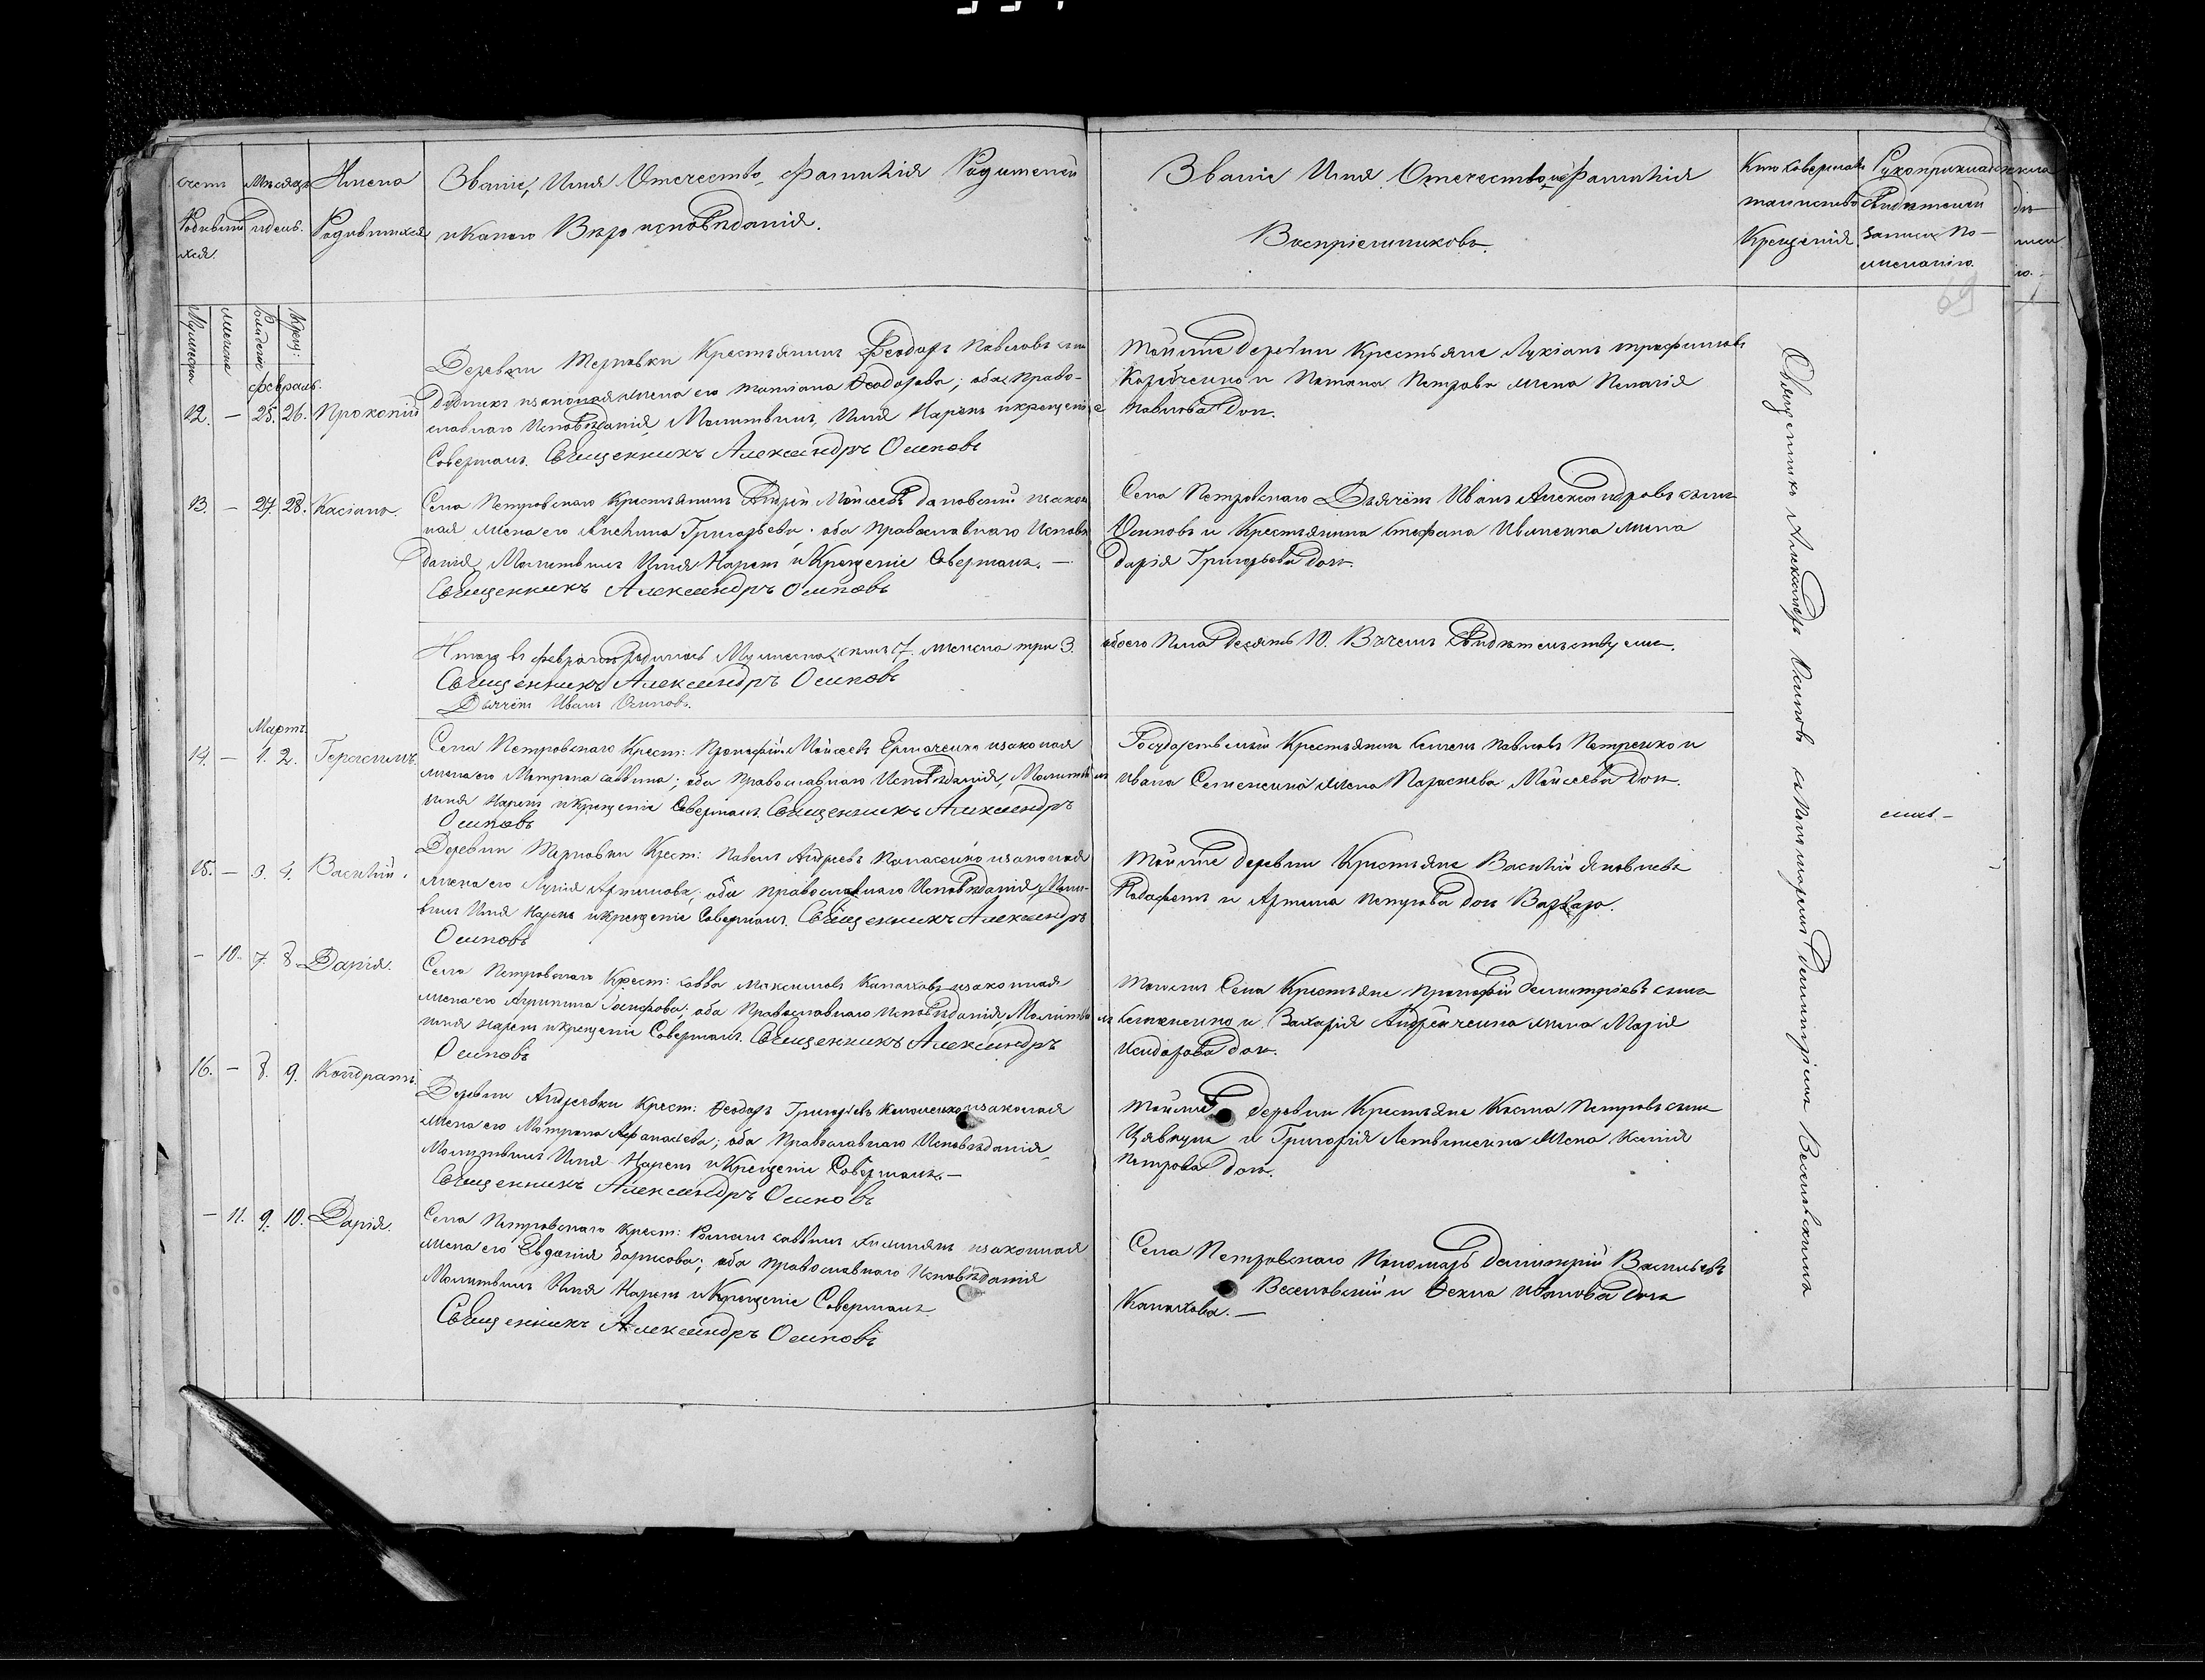 счетъ Мѣсяцъ Имена Званіе, Имя Отечество, Фамилія Родителей
Родивши и день. Родившихся и какого Вѣроисповѣданія.
хся.
Званіе Имя Отечество, и Фамилія
Воспріемниковъ.
Кто совершалъ
таинство
Крещенія.
Рукоприкладс
Свидѣтелей
записи по
желанію.
69
Мужеска женска Рожденія Крещ:
Февраль.
12. — 25. 26. Прокопій
Деревни Терновки Крестьянинъ Феодоръ Павловъ сынъ
изаконая жена его Татіана Феодорова; оба Право-
славнаго Исповѣданія, Молитвилъ, Имя Нарекъ и крещеніе
Совершалъ. Священникъ Александръ Осиповъ
Той же деревни Крестьяне Лукіанъ Трофимовъ
и Петрова жена Пелагія
Павлова Доч.
13. — 27. 28. Касіанъ.
Села Петровскаго Крестьянинъ Андрей Мойсеевъ изакон
ная жена его Григорьева; оба Православнаго Исповѣ
данія, Молитвилъ Имя Нарекъ и Крещеніе Совершалъ. —
Священникъ Александръ Осиповъ
Села Петровскаго Дьячёкъ Иванъ Александровъ сынъ
Осиповъ и Крестьянина Стефана жена
Дарія Григорьева Доч.
Итого въ февралѣ родилось Мужеска семь 7. женска три 3. обоего Пола Десять 10. Въ чемъ Свидѣтельствуемъ.
Священникъ Александръ Осиповъ
Дьячёкъ Иванъ Осиповъ.
Мартъ
14. — 1. 2. Герасимъ.
Села Петровскаго Крест: Прокофій Мойсеевъ Ермаченко изаконая
жена его Матрона Саввина; оба Православнаго Исповѣданія, Молитвилъ
имя Нарекъ и Крещеніе Совершалъ. Священникъ Александръ
Осиповъ
Государственый Крестьянинъ Павловъ Петренко и
Ивана Семененка жена Параскева Мойсеева Доч.
15. — 3. 4. Василій.
Деревни Терновки Крест: Павелъ Андреевъ изаконая
жена его оба Православнаго Исповѣданія, Молит-
вилъ Имя Нарекъ и крещеніе Совершалъ. Священникъ Александръ
Осиповъ
Той же деревни Крестьяне Василій Яковлевъ
и Петрова Доч
— 10. 7. 8. Дарія.
Села Петровскаго Крест: Савва Максимовъ изаконная
жена его Агрипина оба Православнаго Исповѣданія, Молитвилъ
имя Нарекъ и крещеніе Совершалъ. Священникъ Александръ
Осиповъ
Тогожъ Села Крестьяне Прокофій Демитріевъ сынъ
и Захарія Андрейченка жена Марія
Исидорова Доч.
16. — 8. 9. Кондратъ.
Деревни Андреевки Крест: Феодоръ Григорьевъ изаконая
жена его Матрона Афанасіева; оба Православнаго Исповѣданія,
Молитвилъ Имя Нарекъ и Крещеніе Совершалъ. —
Священникъ Александръ Осиповъ
Той же деревни Крестьяне Косма Петровъ сынъ
и Григорія жена Ксенія
Петрова Доч.
— 11. 9. 10. Дарія.
Села Петровскаго Крест: Романъ Саввинъ изаконная
жена его Евдокія Борисова; оба Православнаго Исповѣданія
Молитвилъ Имя Нарекъ и Крещеніе Совершалъ
Священникъ Александръ Осиповъ
Села Петровскаго Пономарь Демитрій Васильевъ
Веселовскій и Фекла Иванова Доч
Канахова. —
Священникъ Александръ Осиповъ съ Пономаремъ Демитріемъ Веселовскимъ